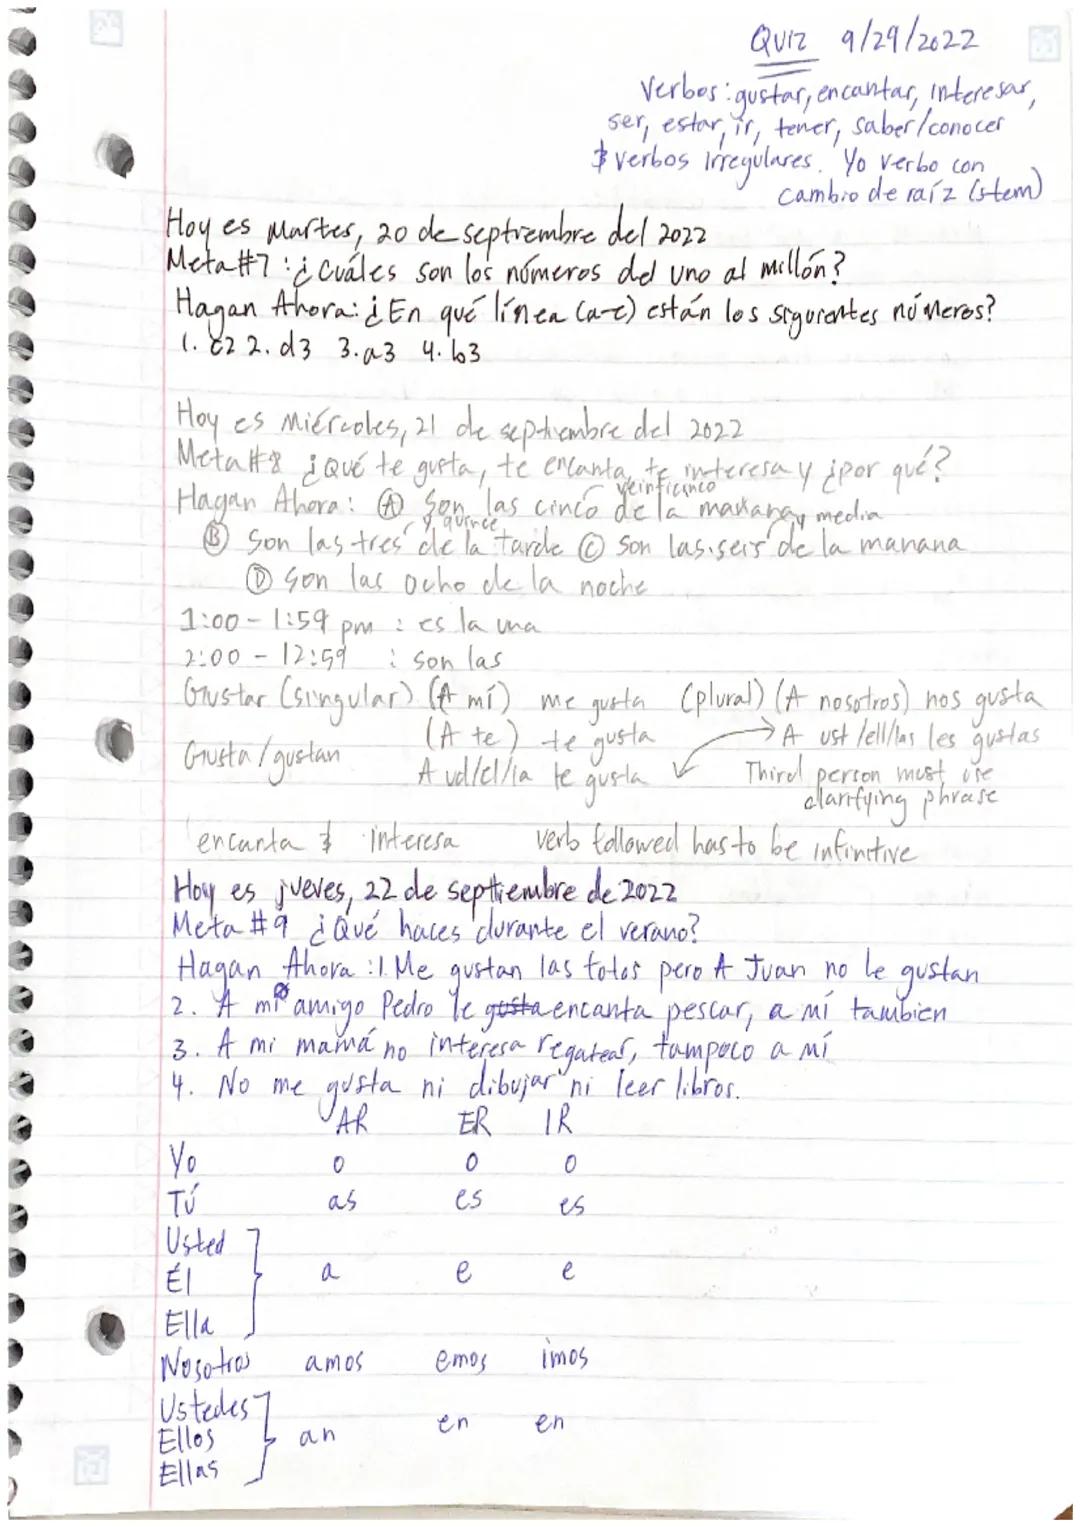 QUIZ 9/29/2022
Verbos: gustar, encantar, interesar,
ser, estar, ir, tener, saber/conocer
& verbos irregulares. Yo verbo con
cambio de raíz (stem)
Hoy es Martes, 20 de septiembre del 2022
Meta #7: ¿Cuáles son los números del uno al millón?
Hagan Ahora: ¿En qué línea (a-e) están los siguientes números?
1. c2 2. d3 3. a3 4. b3
Hoy es miércoles, 21 de septiembre del 2022
Meta #8 ¿Qué te gusta, te encanta, te interesa y ¿por qué?
veinticinco
Hagan Ahora: Ⓐ Son las cinco de la mañana y media
y quince
Ⓑ Son las tres de la tarde Ⓒ Son las seis de la manana
Ⓓ Son las ocho de la noche
1:00 - 1:59 pm : es la una
2:00 - 12:59 : son las
Gustar (singular) (A mí) me gusta (plural) (A nosotros) nos gusta
(A te) te gusta A ust/ell/las les gustas
Gusta/gustan A ud/el/la le gusta Third person must use
clarifying phrase
encanta & interesa verb followed has to be infinitive
Hoy es jueves, 22 de septiembre de 2022
Meta #9 ¿Qué haces durante el verano?
Hagan Ahora: 1. Me gustan las fotos pero A Juan no le gustan
2. A mi amigo Pedro le gusta encanta pescar, a mí tambien
3. A mi mamá no interesa regatear, tampoco a mí
4. No me gusta ni dibujar ni leer libros.
AR ER IR
Yo o o o
Tú as es es
Usted
Él a e e
Ella
Nosotros amos emos imos
Ustedes
Ellos an en en
Ellas